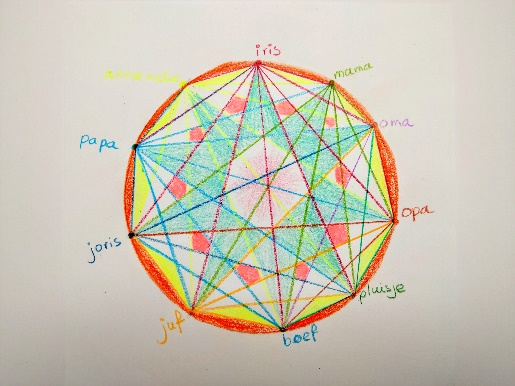 iris
mama
oma
opa
pluisje
boef
juf
joris
papa